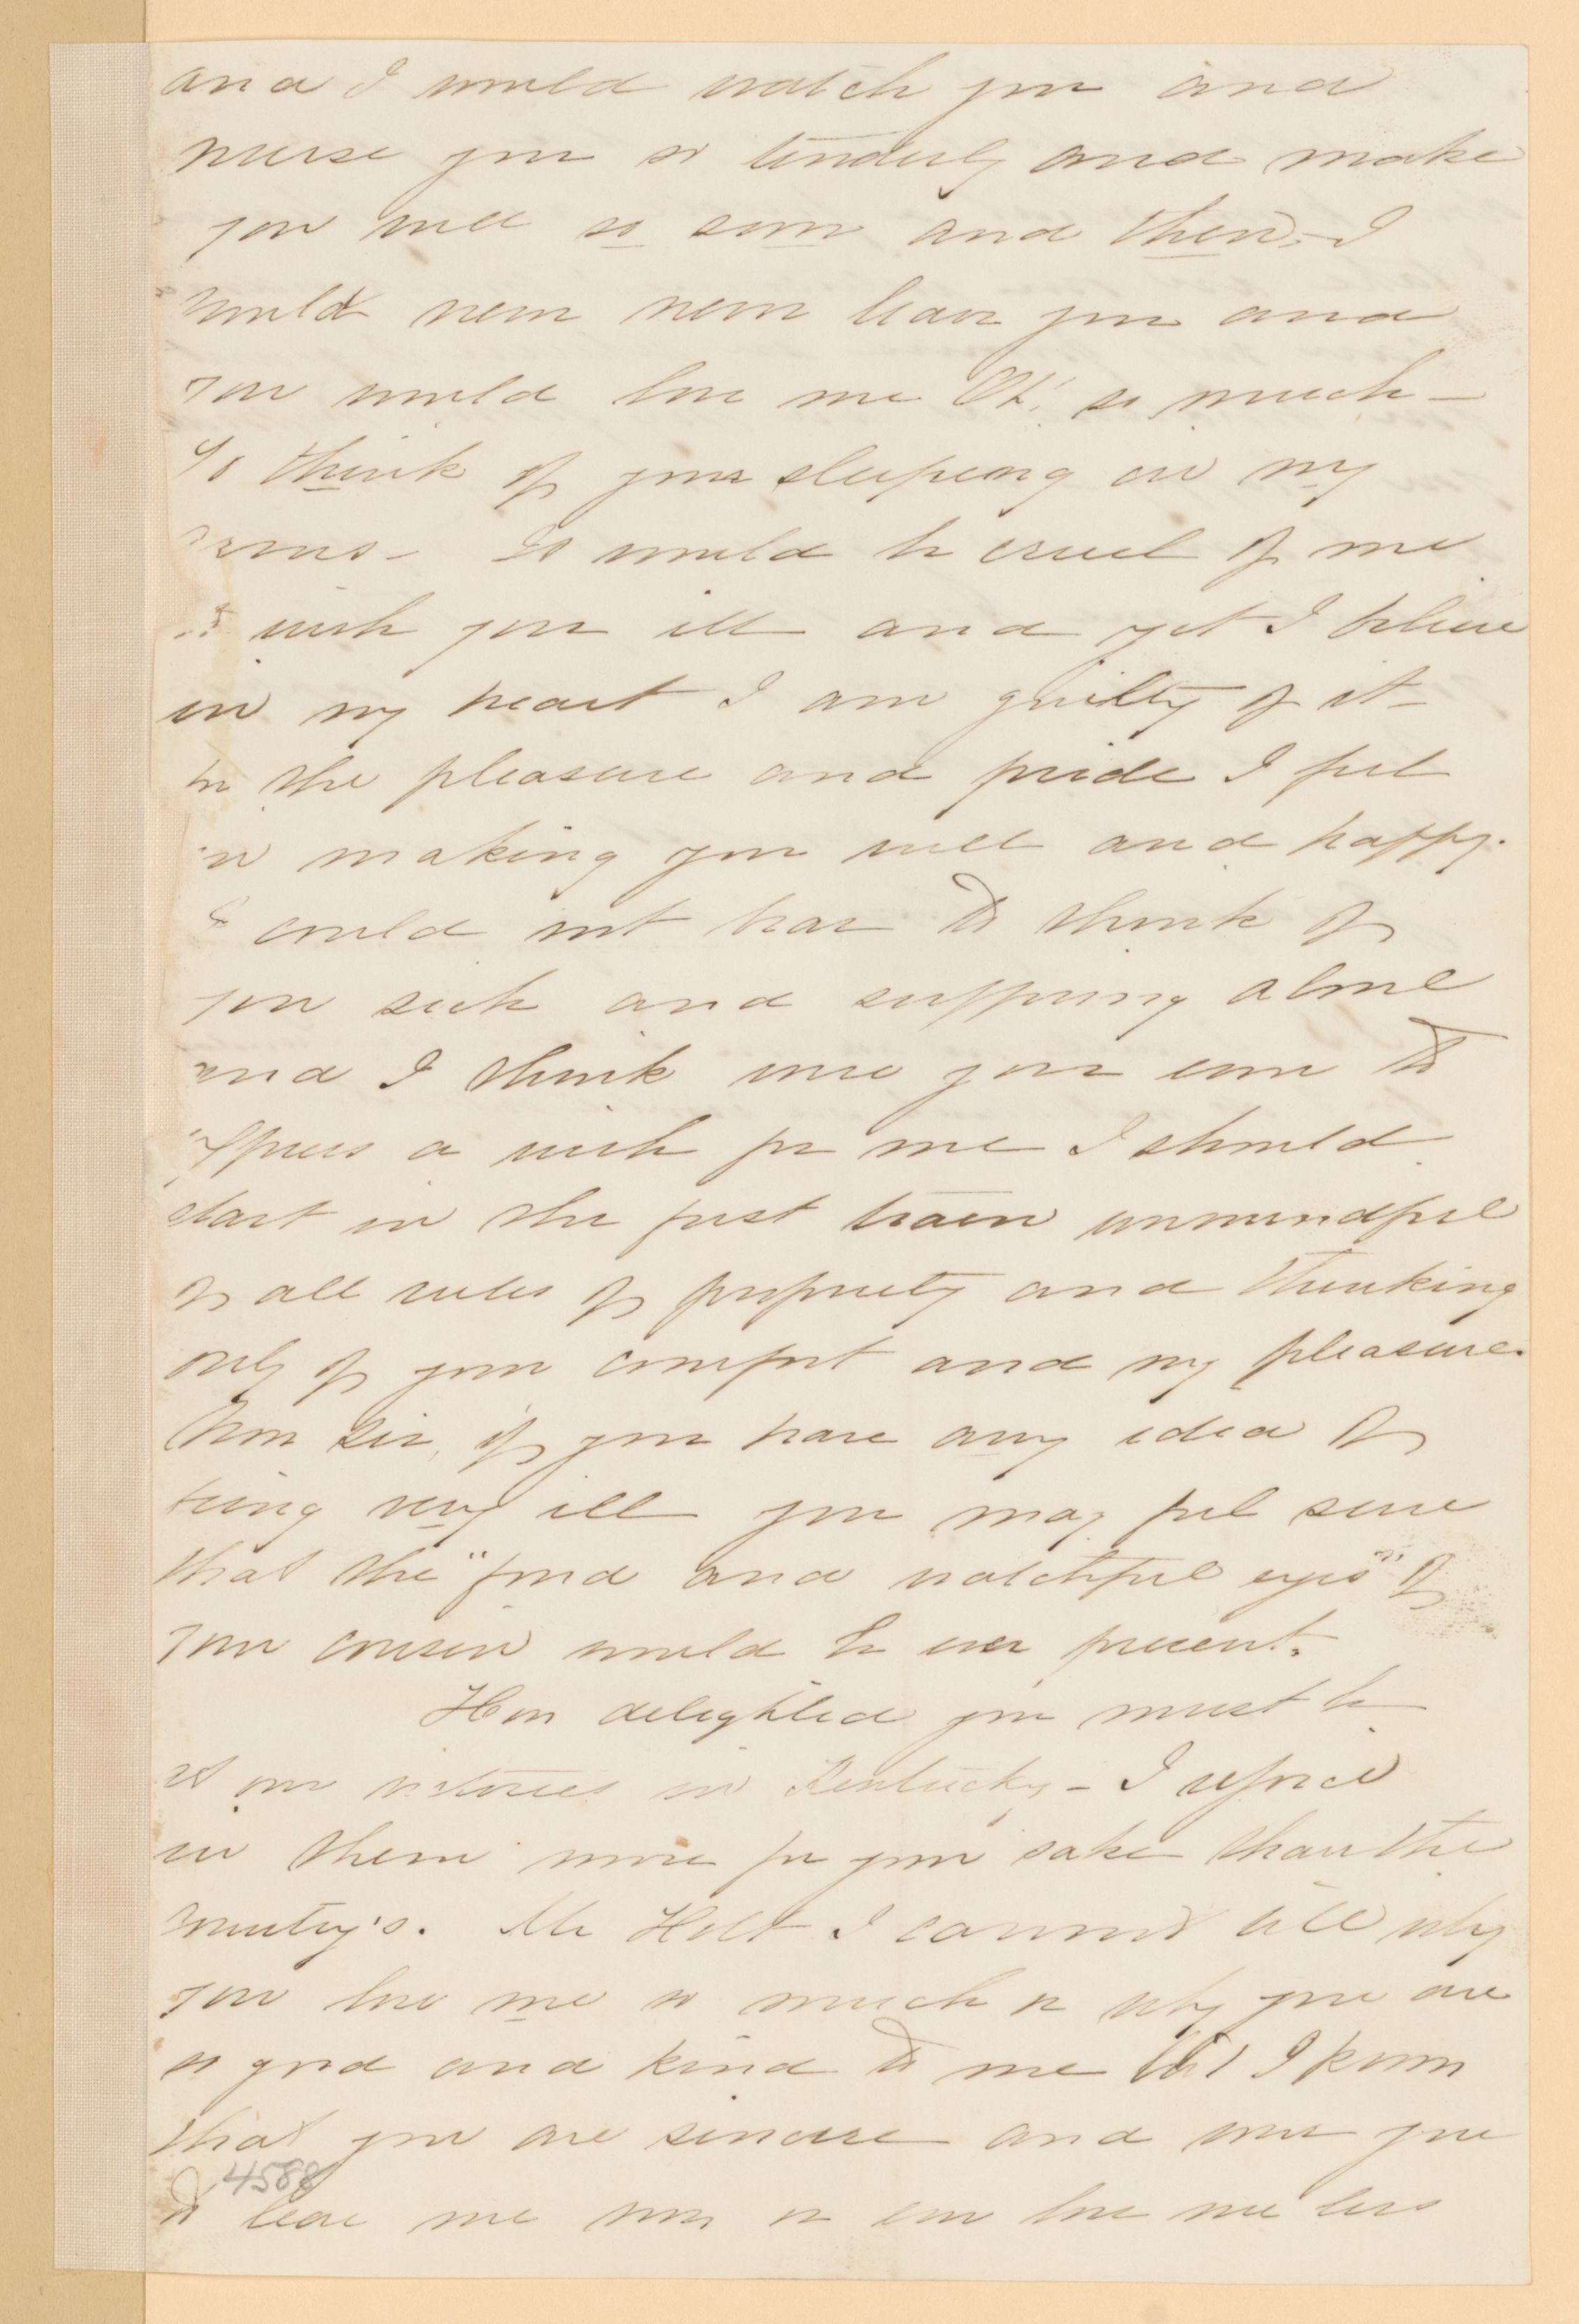 and I would watch you and
nurse you so tenderly and make
you well so soon and then, - I
would never never leave you and
you would love me Oh! so much -
To think of your sleeping in my
arms - It would be cruel of me
to wish you ill and yet I believe
in my heart I am guilty of it -
for the pleasure and pride I feel
in making you well and happy.
I could not bear to think of
you sick and suffering alone
and I think were you ever to
express a wish for me I should
start in the first train unmindful
of all rules of propriety and thinking
only of your comfort and my pleasure.
Now sir, if you have any idea of
being very ill you may feel sure
that the "fond and watchful eyes" of
your cousin would be ever present.
How delighted you must be
at our victories in Kentucky - I rejoice
in them more for your sake than the
country's. Mr Holt I cannot tell why
you love me so much or why you are
so good and kind to me but I know
that you are sincere and were you
4588
to leave me now or ever love me less